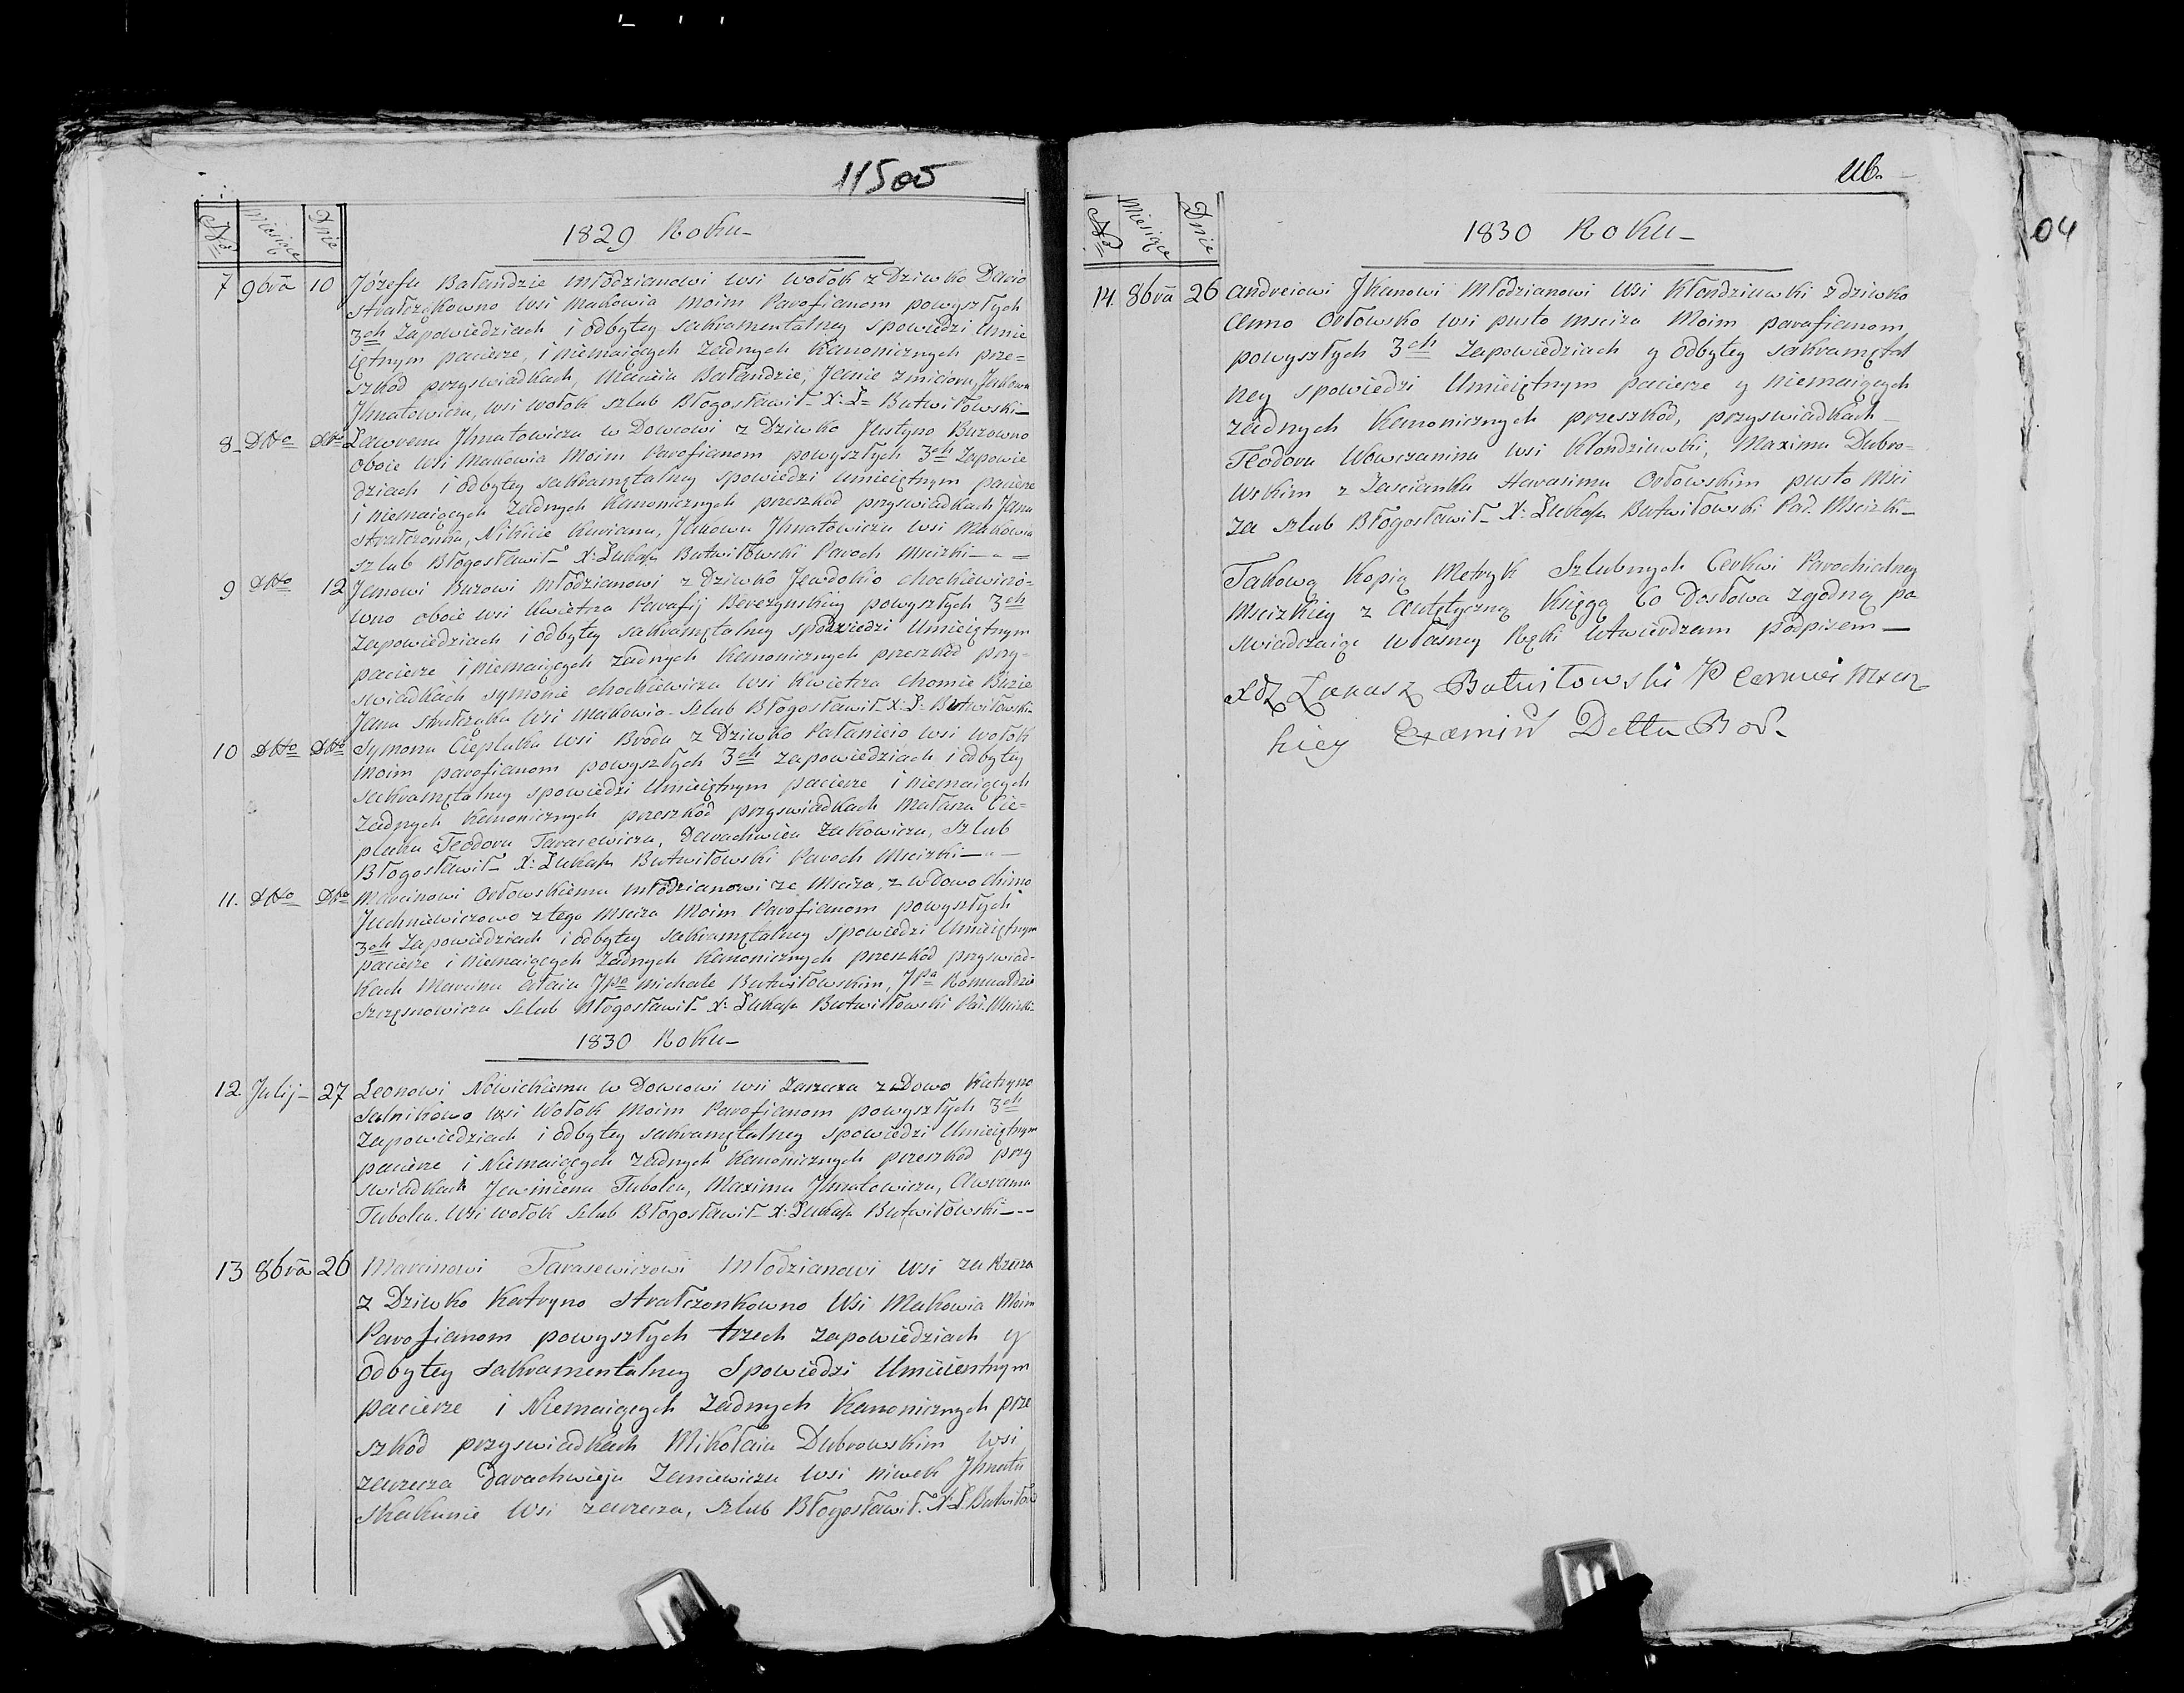 115об
№ Miesiące Dnie
1829 Roku
7 9bra 10 Józefu Bałandzie Młodzianowi wsi Wołok z Dziwko Dario
Strałczękowno wsi Makowia Moim Parofianom powyszłych
3ch Zapowiedziach i odbytey sakramentalney spowiedzi Umie
iętnym pacierze, i niemaiących Zadnych Kanonicznych prze=
szkod przyswiadkach, Macieiu Bałandzie, Janie Zmiciora, Jakowu
Jhnatowiczu, wsi Wołok szlub Błogosławił X: Ł= Butwiłowski
8 Dtto Dtto Ławrenu Jhnatowiczu w Dowcowi z Dziwko Justyno Buzowno
oboie wsi Makowia Moim Parofianom powyszłych 3ch Zapowie
dziach i odbytey sakramętalney spowiedzi umieiętnym pacierze
i niemaiących Zadnych Kanonicznych przeszkod przyswiadkach Janu
Strałczonku, Nikicie Kawianu, Jakowu Jhnatowiczu wsi Makowia
szlub Błogosławił X: Łukasz Butwiłowski Paroch Mscizki
9 Dtto 12 Janowi Buzowi Młodzianowi z Dziwko Jewdokio Chockiewiczo=
wno oboie wsi Kwietcza Parafij Berezynskiey powyszłych 3ch
Zapowiedziach i odbytey sakramętalney spowiedzi Umieiętnym
pacierze i niemaiących Zadnych Kanonicznych przeszkod przy-
swiadkach Symonie Chockiewiczu wsi Kwietcza Chomie Buzie
Janu Strałczęku wsi Makowio Szlub Błogosławił X: Ł: Butwiłowski
10 Dtto Dtto Symonu Cieplaku wsi Brodu z Dziwko Pałanieio wsi Wołok
Moim parofianom powyszłych 3ch Zapowiedziach i odbytey
sakramętalney spowiedzi Umieiętnym pacierze i niemaiących
Zadnych Kanonicznych przeszkod przyswiadkach Małaszu Cie=
plaku Teodoru Tarasewiczu, Darachwieu Zakowiczu, Szlub
Błogosławił X: Łukasz Butwiłowski Paroch Mscizki
11. Dtto Dtto Marcinowi Orłowskiemu Młodzianowi ze Msciża, z wdowo Chimo
Juchniewiczowo z tego Msciża Moim Parofianom powyszłych
3ch Zapowiedziach i odbytey sakramętalney spowiedzi Umieiętnym
pacierze i niemaiących Zadnych Kanonicznych przeszkod przyswiad-
kach Marcinu Jpa Michale Butwiłowskim, Jpa Romualdzie
Szczęsnowiczu Szlub Błogosławił X: Łukasz Butwiłowski Par. Mscizki
1830 Roku
12. Julij 27 Leonowi Nowickiemu w Dowcowi wsi Zarzecza z wDowo Katryno
Salnikowo wsi Wołok Moim Parofianom powyszłych 3ch
Zapowiedziach i odbytey sakramętalney spowiedzi Umieiętnym
pacierze i Niemaiących Zadnych Kanonicznych przeszkod przy
swiadkach Jewmienu Tubolcu, Maximu Jhnatowiczu, Awramu
Tubolcu. wsi Wołok Szlub Błogosławił X: Łukasz Butwiłowski
13 8bra 26 Marcinowi Tarasewiczowi Młodzianowi wsi
z Dziwko Katryno Strałczonkowno Wsi Makowia Moim
Parofianom powyszłych trzech Zapowiedziach y
odbytey sakramentalney Spowiedzi Umieientnym
pacierze i Niemaiących Zadnych Kanonicznych prze
szkod przyswiadkach Mikołaiu Dubrowskim wsi
zarzecza Darachwieju Zeniewiczu wsi niwek Jhnatu
Skakunie Wsi zarzecza, Szlub Błogosławił. X: Ł. Butwiłow
116.
04
№ Miesiące Dnie
1830 Roku
14. 8bra 26 Andreiowi Jkanowi Młodzianowi Wsi Kłondziewki z dziwko
Anno Orłowsko wsi pusto Msciża Moim parafianom,
powyszłych 3ch Zapowiedziach y odbytey sakramętal
ney spowiedzi Umieiętnym pacierze y niemaiących
zadnych Kanonicznych przeszkod, przyswiadkach
Teodoru Wowczaninu wsi Kłondziewki, Maximu Dubro=
wskim z Zascianku Harasimu Orłowskim pusto Msci
za szlub Błogosławił X: Łukasz Butwiłowski Par. Mscizki
Takową Kopią Metryk Szlubnych Cerkwi Parochialney
Mscizkiey z Autętyczną Księgą Co Dosłowa zgodną po
swiadczaiąc własney Ręki utwierdzam podpisem
Xdz Łukasz Butwiłowski P Cerkwi Msciz
kiey Bor.